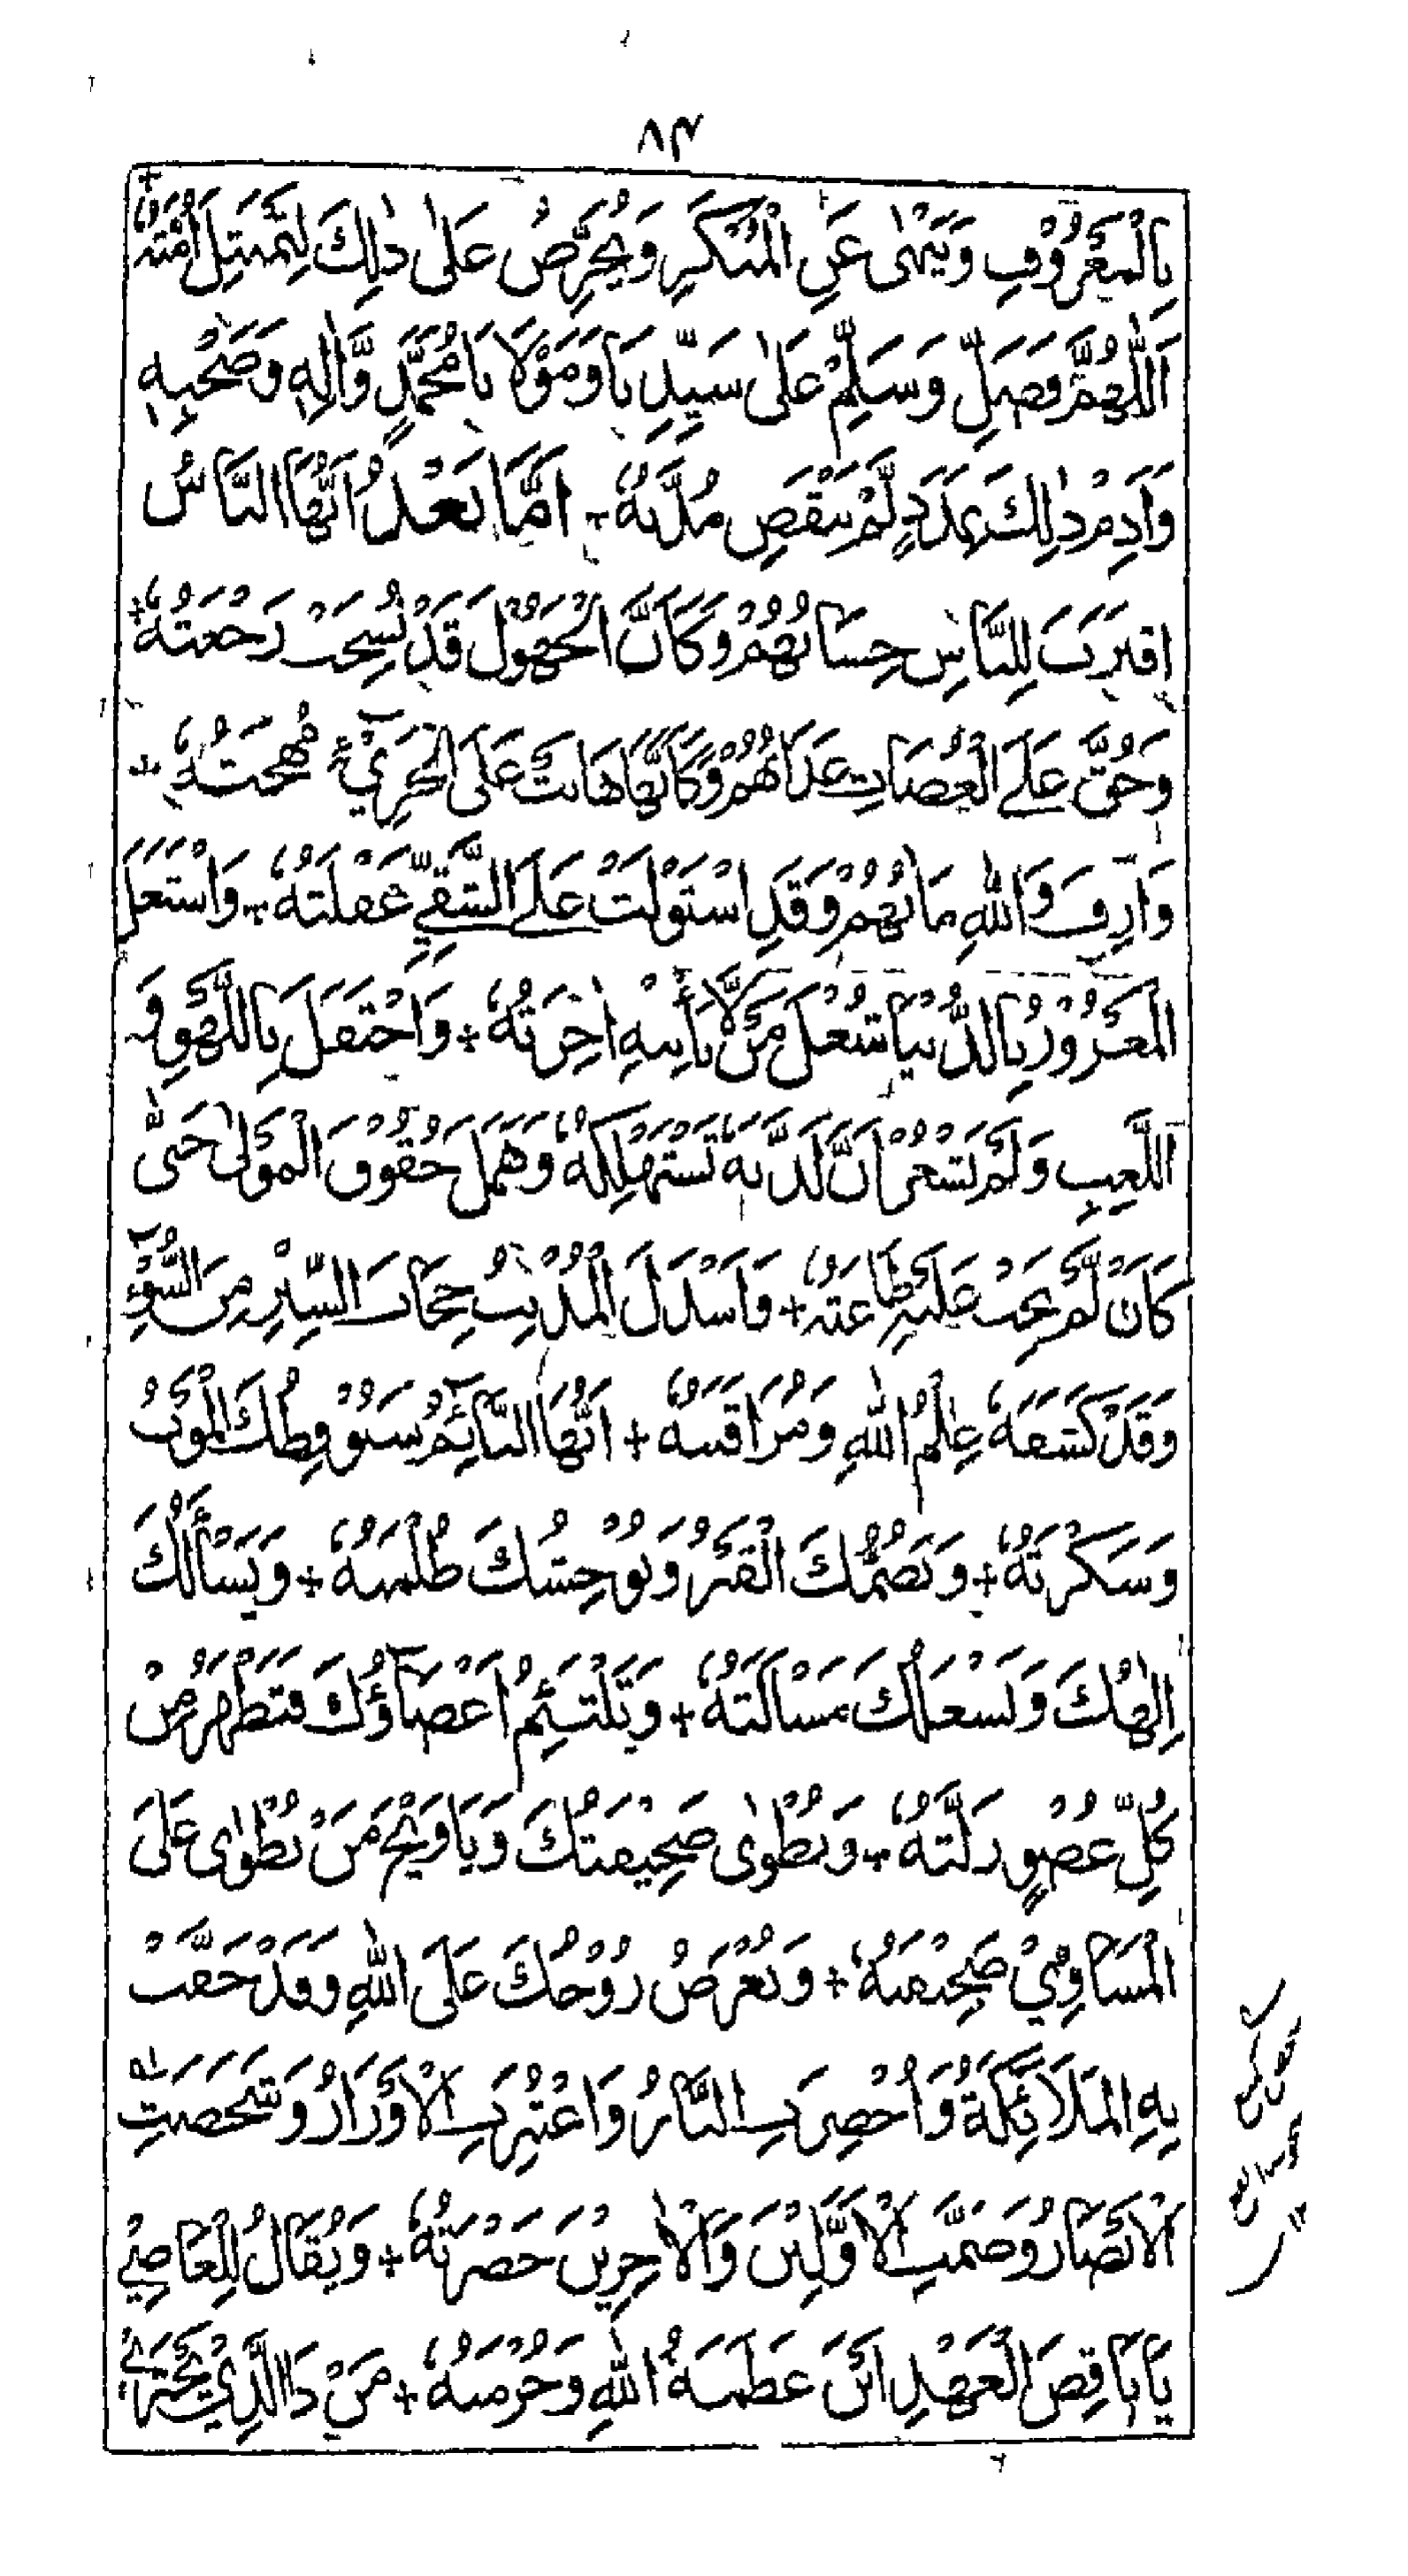 ٨٣
بِالْمَعْرُوْفِ وَيَنْهٰى عَنِ الْمُنْكَرِ وَيُحَرِّصُ عَلٰى ذٰلِكَ لِتَمْتَثِلَ اُمَّتُهٗ +
اَللّٰهُمَّ فَصَلِّ وَسَلِّمْ عَلٰى سَيِّدِنَا وَمَوْلَانَا مُحَمَّدٍ وَّاٰلِهٖ وَصَحْبِهٖ
وَاَدِمْ ذٰلِكَ بِمَدَدٍ لَّمْ تَنْقُصِ مُدَّتُهٗ + اَمَّا بَعْدُ اَيُّهَا النَّاسُ
اِقْتَرَبَ لِلنَّاسِ حِسَابُهُمْ وَكَاَنَّ الْجَهُوْلَ قَدْ نُسِخَتْ رَجْعَتُهٗ +
وَحُقَّ عَلَى الْعُصَاتِ عَذَابُهُمْ وَكَاَنَّهَا هَانَتْ عَلَى الْجَرِيْٓءِ مُهْجَتُهٗ +
وَاَزِفَ وَاللّٰهِ مَاٰبُهُمْ وَقَدِ اسْتَوْلَتْ عَلَى الشَّقِيِّ غَفْلَتُهٗ + وَاشْتَغَلَ
الْمَغْرُوْرُ بِالدُّنْيَا شُغْلَ مَنْ لَّا تَاْتِيْهِ اٰخِرَتُهٗ + وَاحْتَفَلَ بِاللَّهْوِ وَ
اللَّعِبِ وَلَمْ يَشْعُرْ اَنَّ لَذَّتَهٗ تَسْتَهْلِكُهٗ وَهَمَلَ حُقُوْقَ الْمَوْلٰى حَتّٰى
كَاَنْ لَّمْ يَجِبْ عَلَيْهِ طَاعَتُهٗ + وَاَسْدَلَ الْمُذْنِبُ حِجَابَ السِّتْرِ مِنَ السُّوْٓءِ
وَقَدْ كَشَفَهٗ عِلْمُ اللّٰهِ وَمُرَاقَبَتُهٗ + اَيُّهَا النَّآئِمُ سَيُوْقِظُكَ الْمَوْتُ
وَسَكْرَتُهٗ + وَيَضُمُّكَ الْقَبْرُ وَتُوْحِشُكَ ظُلْمَتُهٗ + وَيَسْأَلُكَ
اِلٰهُكَ وَتَشْغَلُكَ مَسْاَلَتُهٗ + وَتَلْتَئِمُ اَعْضَآؤُكَ فَتَظْهَرُ مِنْ
كُلِّ عُضْوٍ زَلَّتُهٗ + وَتُطْوٰى صَحِيْفَتُكَ وَيَا وَيْحَ مَنْ تُطْوٰى عَلَى
الْمَسَاوِيْ صَحِيْفَتُهٗ + وَتُعْرَضُ رُوْحُكَ عَلَى اللّٰهِ وَقَدْ حَفَّتْ
بِهِ الْمَلَائِكَةُ وَاُحْضِرَتِ النَّارُ وَاعْتُبِرَتِ الْاَوْزَارُ وَشَخَصَتِ
الْاَبْصَارُ وَضَمَّتِ الْاَوَّلِيْنَ وَالْاٰخِرِيْنَ حَضْرَتُهٗ + وَيُقَالُ لِلْعَاصِيْ
يَا نَاقِضَ الْعَهْدِ اَيْنَ عَظَمَةُ اللّٰهِ وَحُرْمَتُهٗ + مَنْ ذَا الَّذِيْ